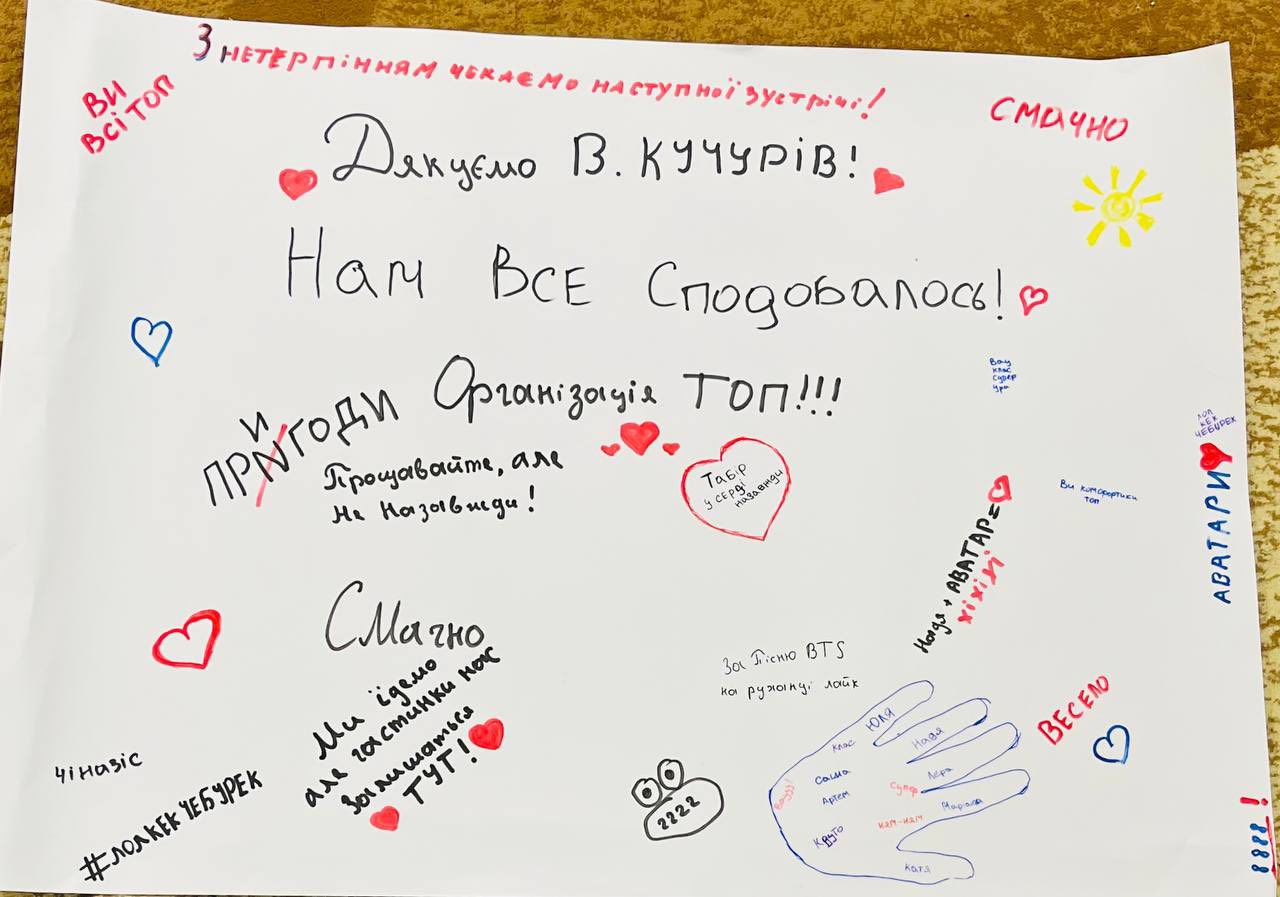 З НЕТЕРПІННЯМ ЧЕКАЄМО НАСТУПНОЇ ЗУСТРІЧІ!
ВИ
ВСІ ТОП
СМАЧНО
Дякуємо В. КУЧУРІВ!
Нам ВСЕ Сподобалось!
Організація ТОП!!!
Вау
клас
супер
ура
ПРИГОДИ
Прощавайте, але
не назавжди!
Табір
у серці
назавжди
ЛОЛ
КЕК
ЧЕБУРЕК
АВАТАРИ
Ви комфортики
топ
Надя + АВАТАР =
хіхіхі
Смачно
Ми їдемо
але частинки нас
залишаться
ТУТ!
За Пісню BTS
на руханці лайк
ВЕСЕЛО
чіназіс
#ЛОЛКЕКЧЕБУРЕК
2222
Юля
Надя
клас
Лера
Саша
Супер
Вауу!
Артем
ням-ням
Круто
Катя
8888!